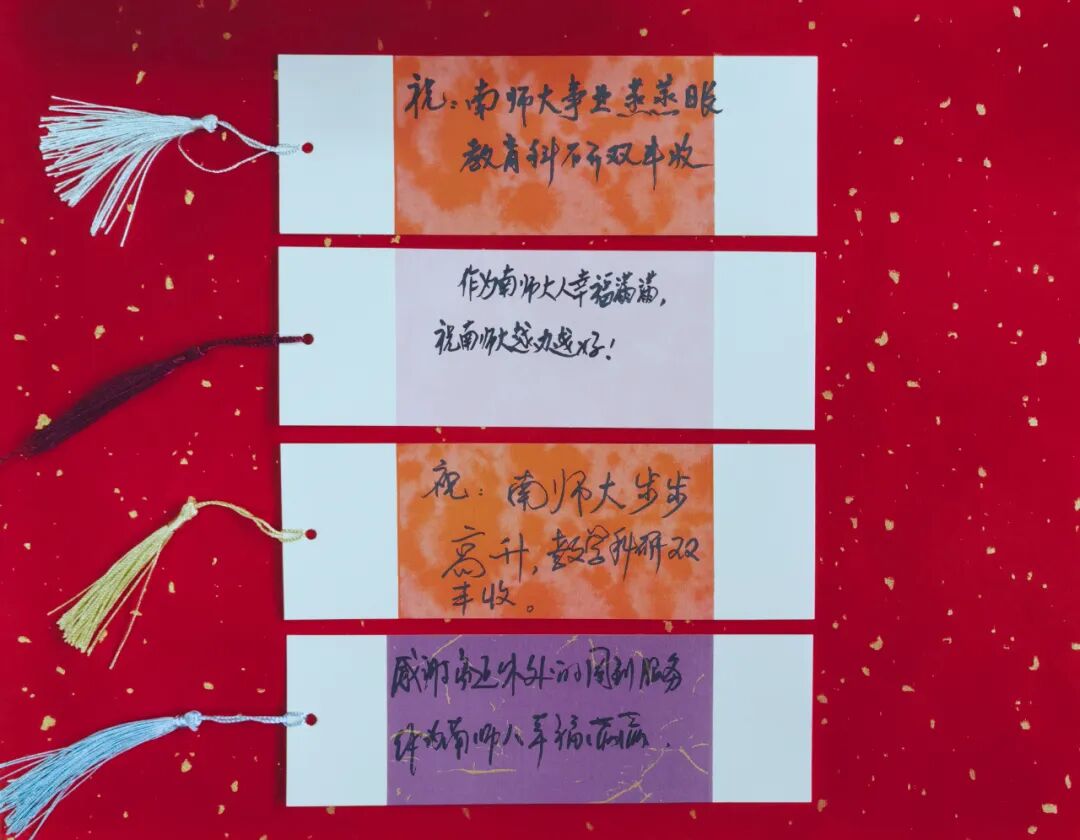 祝：南师大事业蒸蒸日长
教育科研双丰收
作为南师大人幸福满满，
祝南师大越办越好！
祝：南师大步步
高升，教学科研双
丰收。
感谢离退休处的周到服务
作为南师人幸福满满．